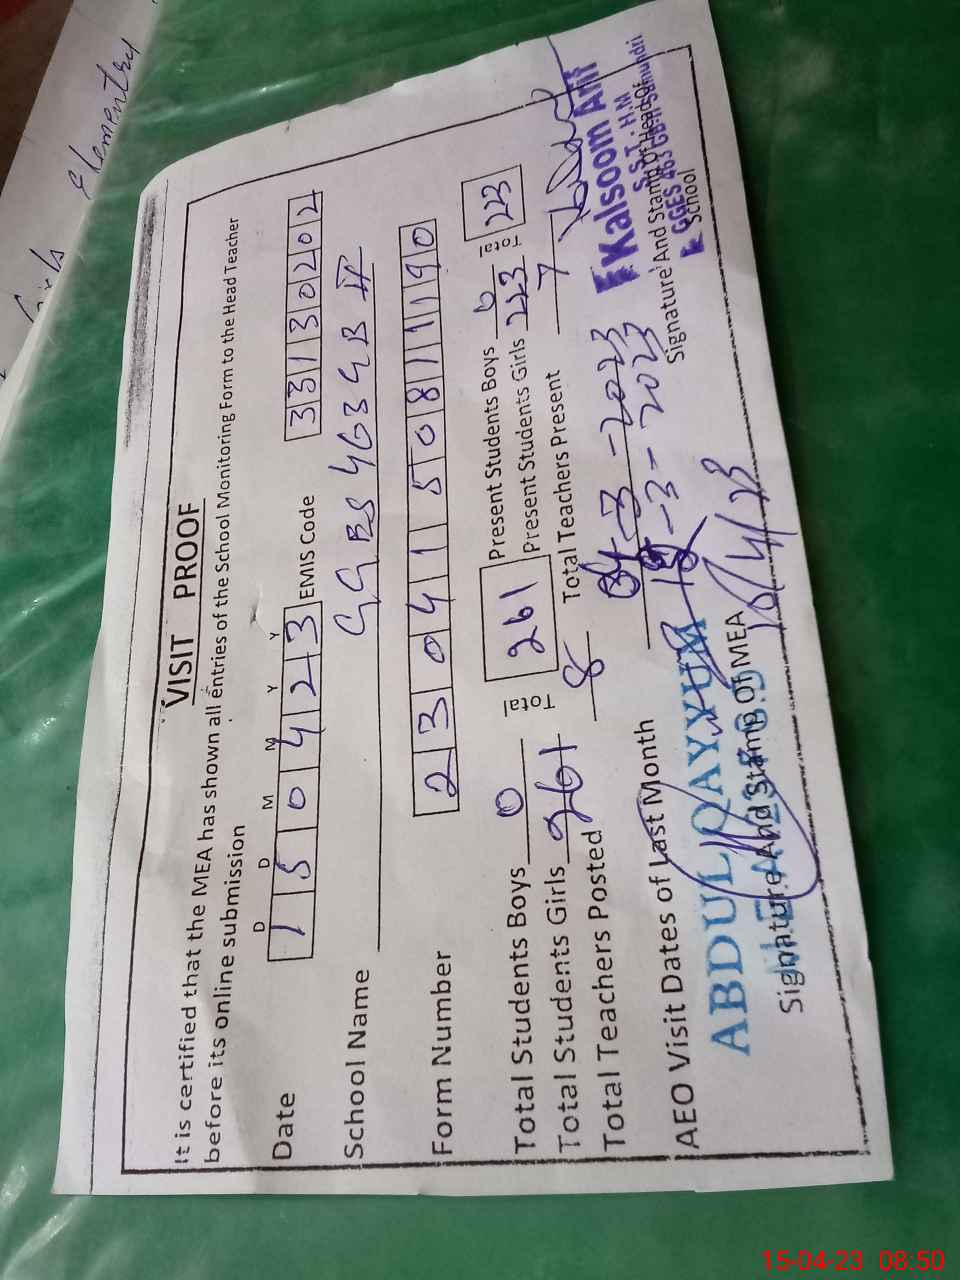 Girls Elementra
VISIT PROOF
It is certified that the MEA has shown all entries of the School Monitoring Form to the Head Teacher
before its online submission
D D M M Y Y
Date 15 04 23 EMIS Code 33130202
School Name GGES 463 GB II
Form Number 2304150811190
Total Students Boys 0 Total 261 Present Students Boys 0 Total 223
Total Students Girls 261 Present Students Girls 223
Total Teachers Posted 8 Total Teachers Present 7
AEO Visit Dates of Last Month -3-2023
-3-2023
ABDUL QAYYUM
Signature And Stamp Of MEA
15/4/23
Kalsoom
S.S.T. H.M
GGES 463 GB-II Samundri
Signature And Stamp Of Head Of
School
15-04-23 08:50